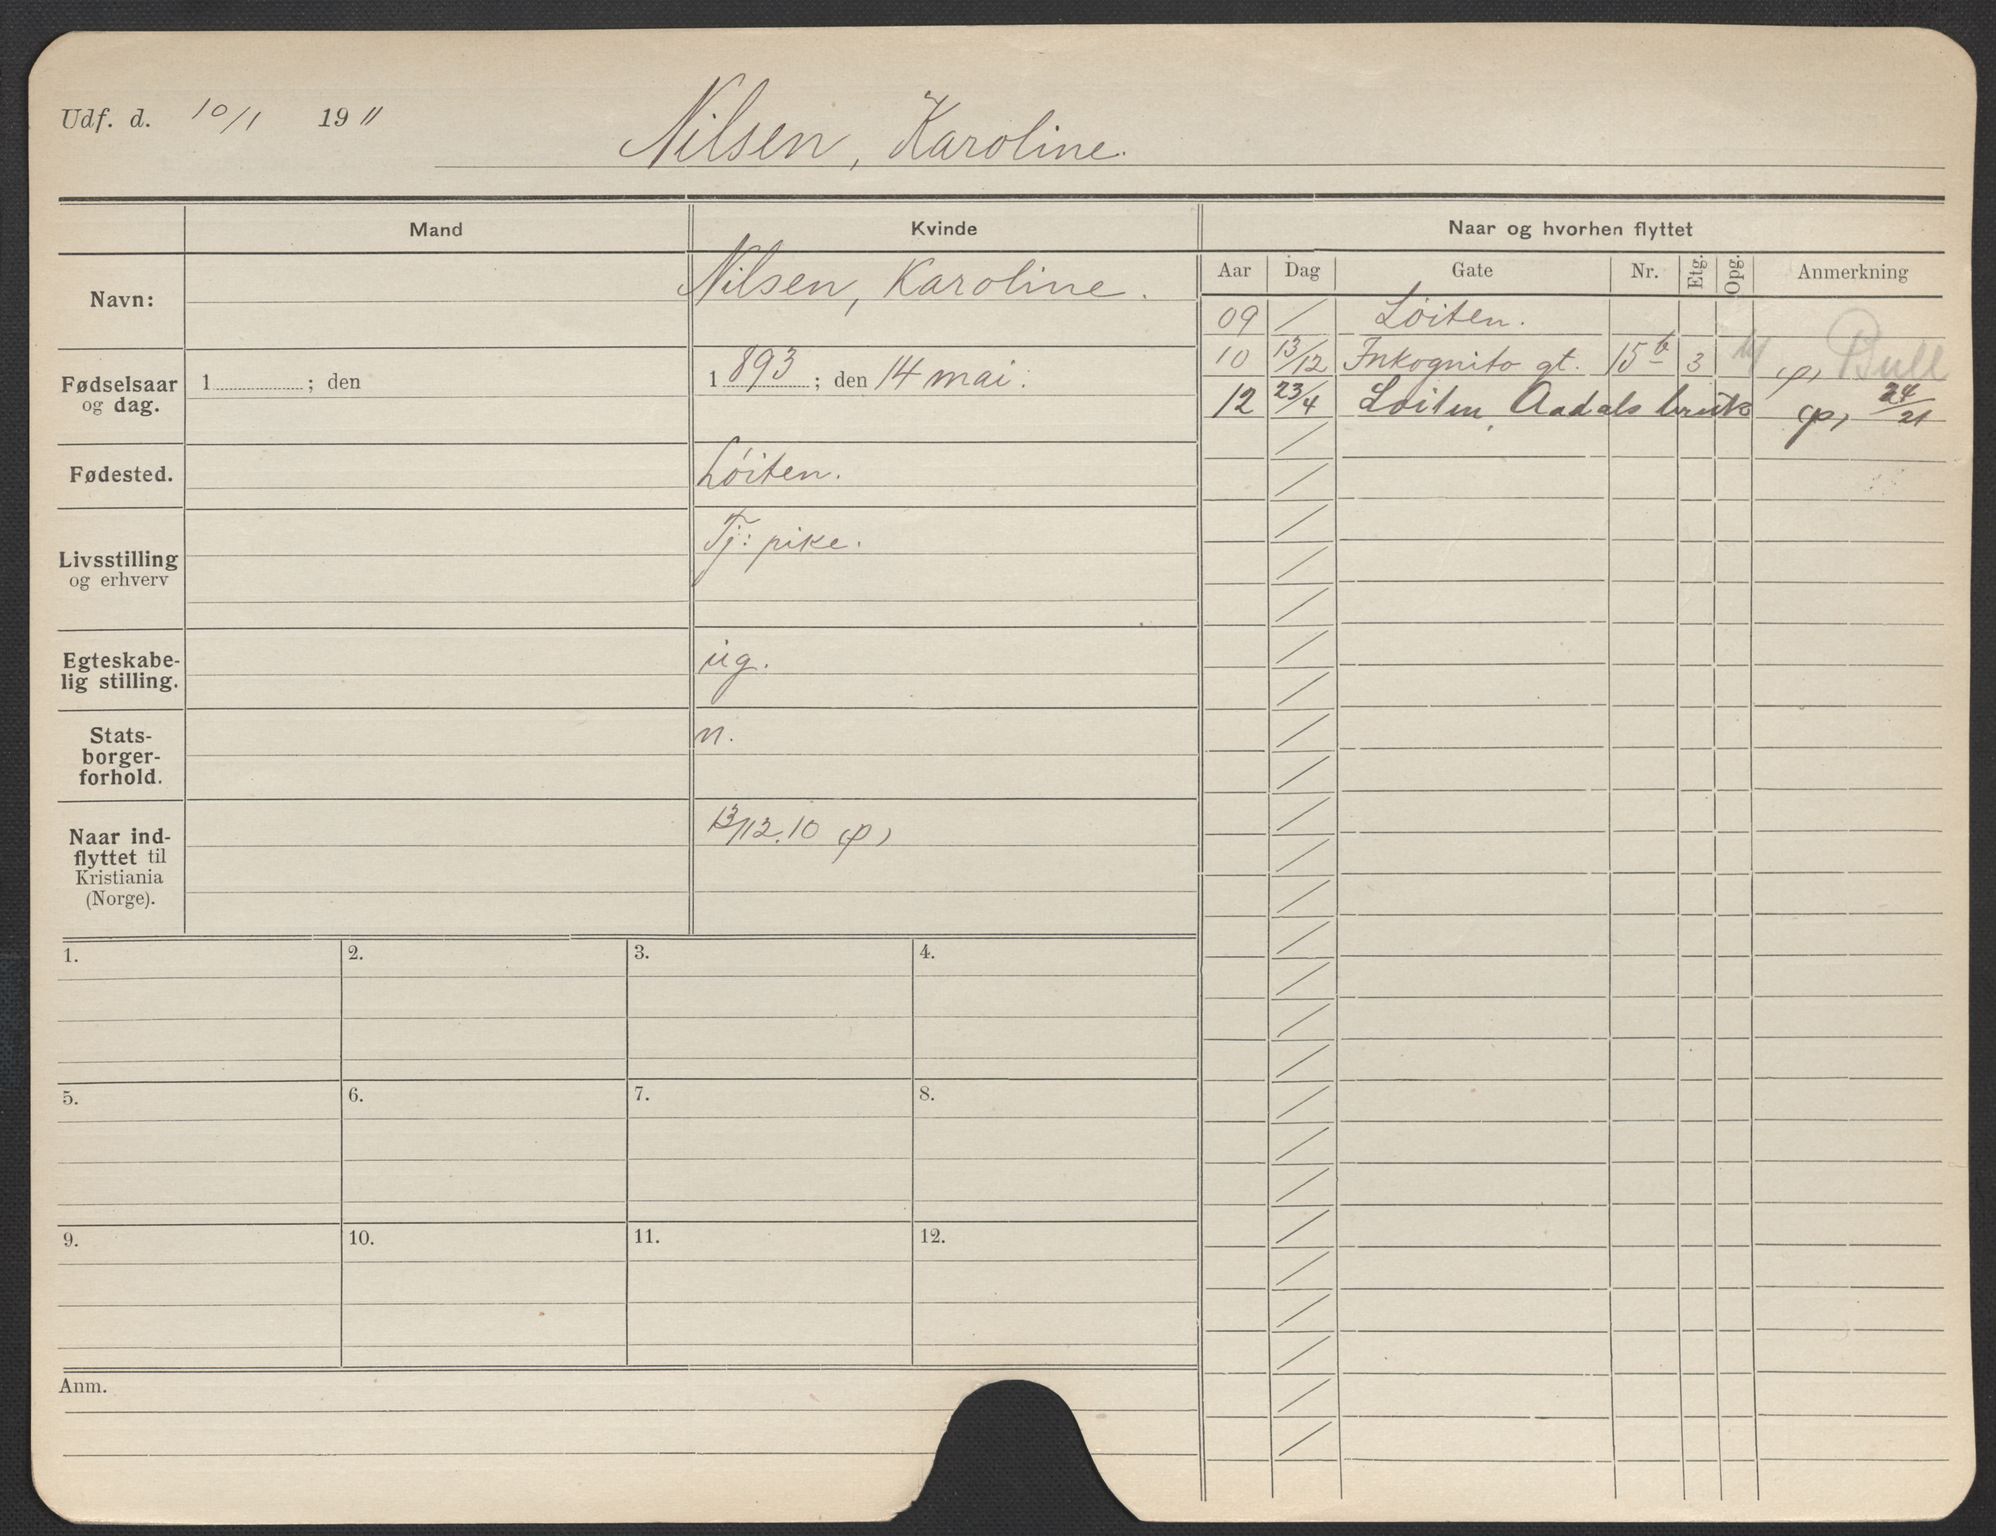 Udf. d. 10/1 1911
Nilsen, Karoline.
Mand
Kvinde
Naar og hvorhen flyttet
Aar Dag Gate Nr. Etg. Opg. Anmerkning
Navn:
Nilsen, Karoline.
09 / Löiten.
10 13/12 Inkognito gt. 15 b 3 (p) Bull
12 23/4 Loiten, Aadals bruk (p) 24/21
Fødselsaar
og dag.
1 ; den
1893 ; den 14 mai.
Fødested.
Löiten.
Livsstilling
og erhverv
Tj: pike.
Egteskabe-
lig stilling.
ug.
Stats-
borger-
forhold.
n.
Naar ind-
flyttet til
Kristiania
(Norge).
13/12.10 (p)
1. 2. 3. 4.
5. 6. 7. 8.
9. 10. 11. 12.
Anm.